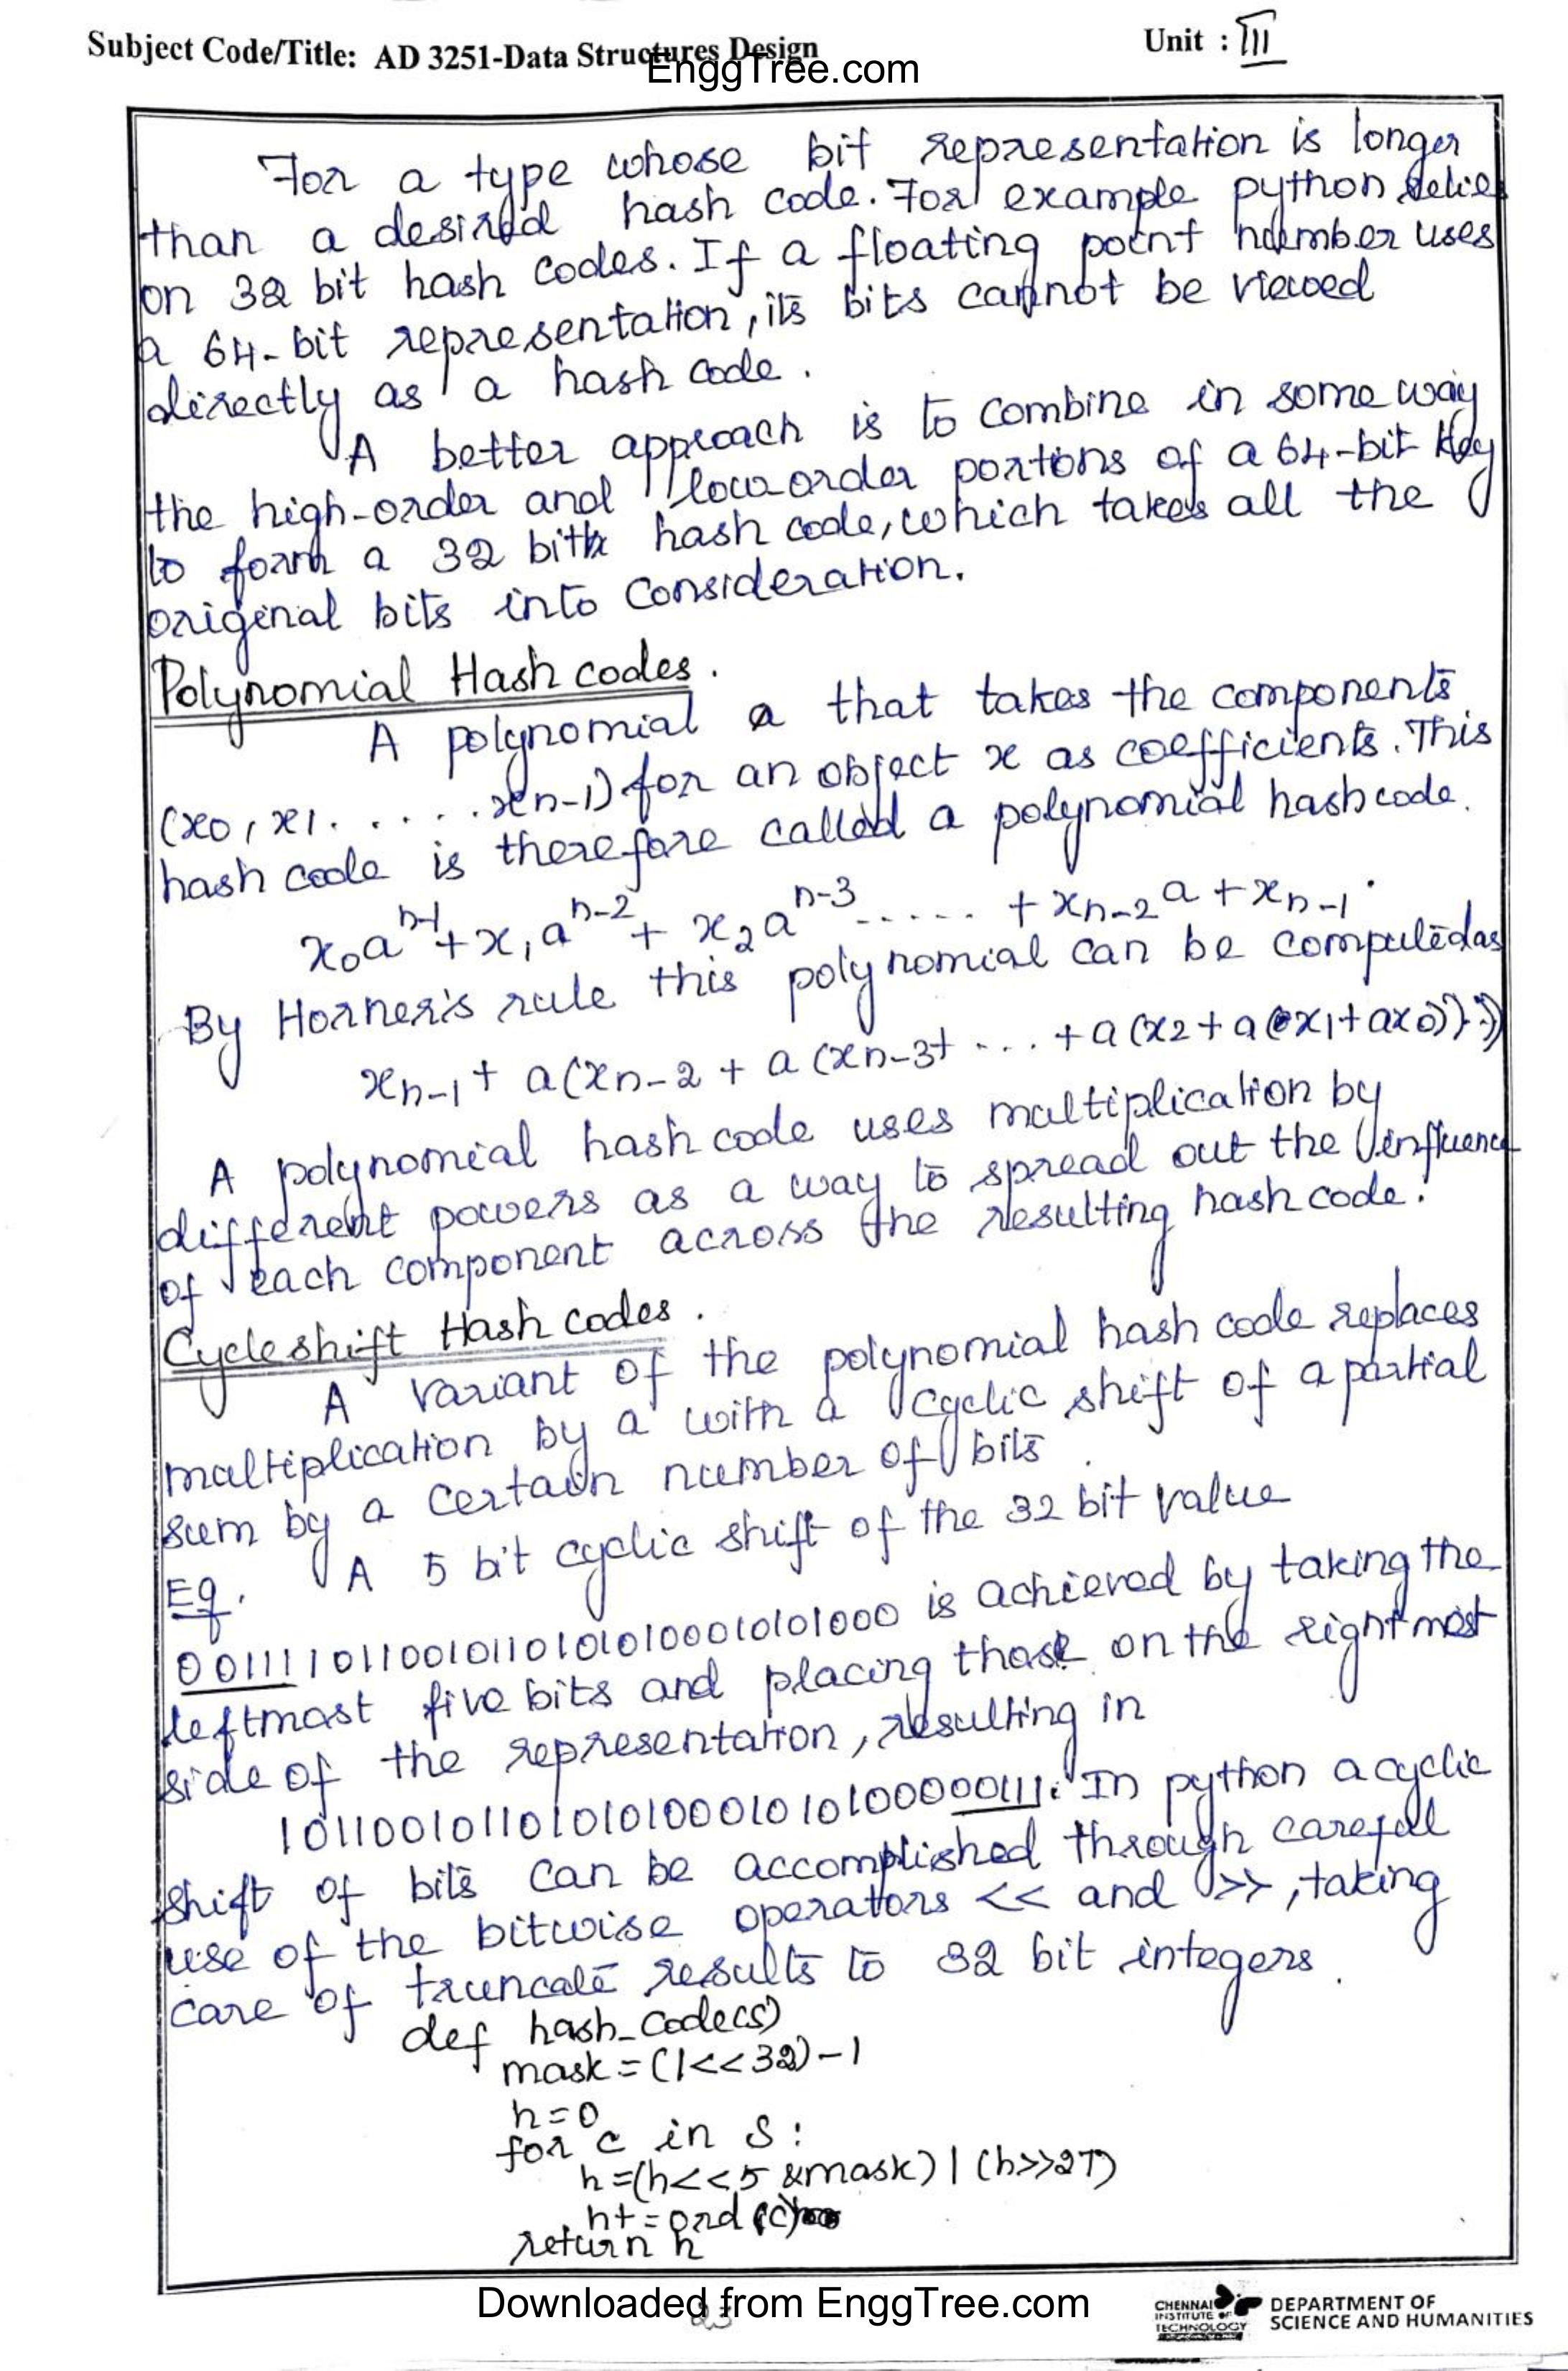 Subject Code/Title: AD 3251-Data Structures Design
Unit : III
EnggTree.com
For a type whose bit representation is longer
than a desired hash code. For example python relies
on 32 bit hash codes. If a floating point number uses
a 64-bit representation, its bits cannot be viewed
directly as a hash code.
A better approach is to combine in some way
the high-order and low order portions of a 64-bit key
to form a 32 bit hash code, which takes all the
original bits into consideration.
Polynomial Hash codes.
A polynomial a that takes the components
(x0, x1. . . . . . xn-1) for an object x as coefficients. This
hash code is therefore called a polynomial hash code.
x₀aⁿ⁻¹ + x₁aⁿ⁻² + x₂aⁿ⁻³ ..... + xₙ₋₂a + xₙ₋₁.
By Horner's rule this polynomial can be computed as
xₙ₋₁ + a(xₙ₋₂ + a(xₙ₋₃ + ... + a(x2 + a(x1 + ax0))))
A polynomial hash code uses multiplication by
different powers as a way to spread out the influence
of each component across the resulting hash code.
Cycleshift Hash codes.
A variant of the polynomial hash code replaces
multiplication by a with a cyclic shift of a partial
sum by a certain number of bits.
Eg. A 5 bit cyclic shift of the 32 bit value
00111101100101101010100010101000 is achieved by taking the
leftmost five bits and placing those on the rightmost
side of the representation, resulting in
10110010110101010001010100000111. In python a cyclic
shift of bits can be accomplished through careful
use of the bitwise operators << and >>, taking
care of truncate results to 32 bit integers.
def hash_code(s)
mask = (1<<32)-1
h=0
for c in s:
h=(h<<5 &mask) | (h>>27)
h+=ord(c)
return h
Downloaded from EnggTree.com
23
CHENNAI
INSTITUTE OF
TECHNOLOGY
DEPARTMENT OF
SCIENCE AND HUMANITIES